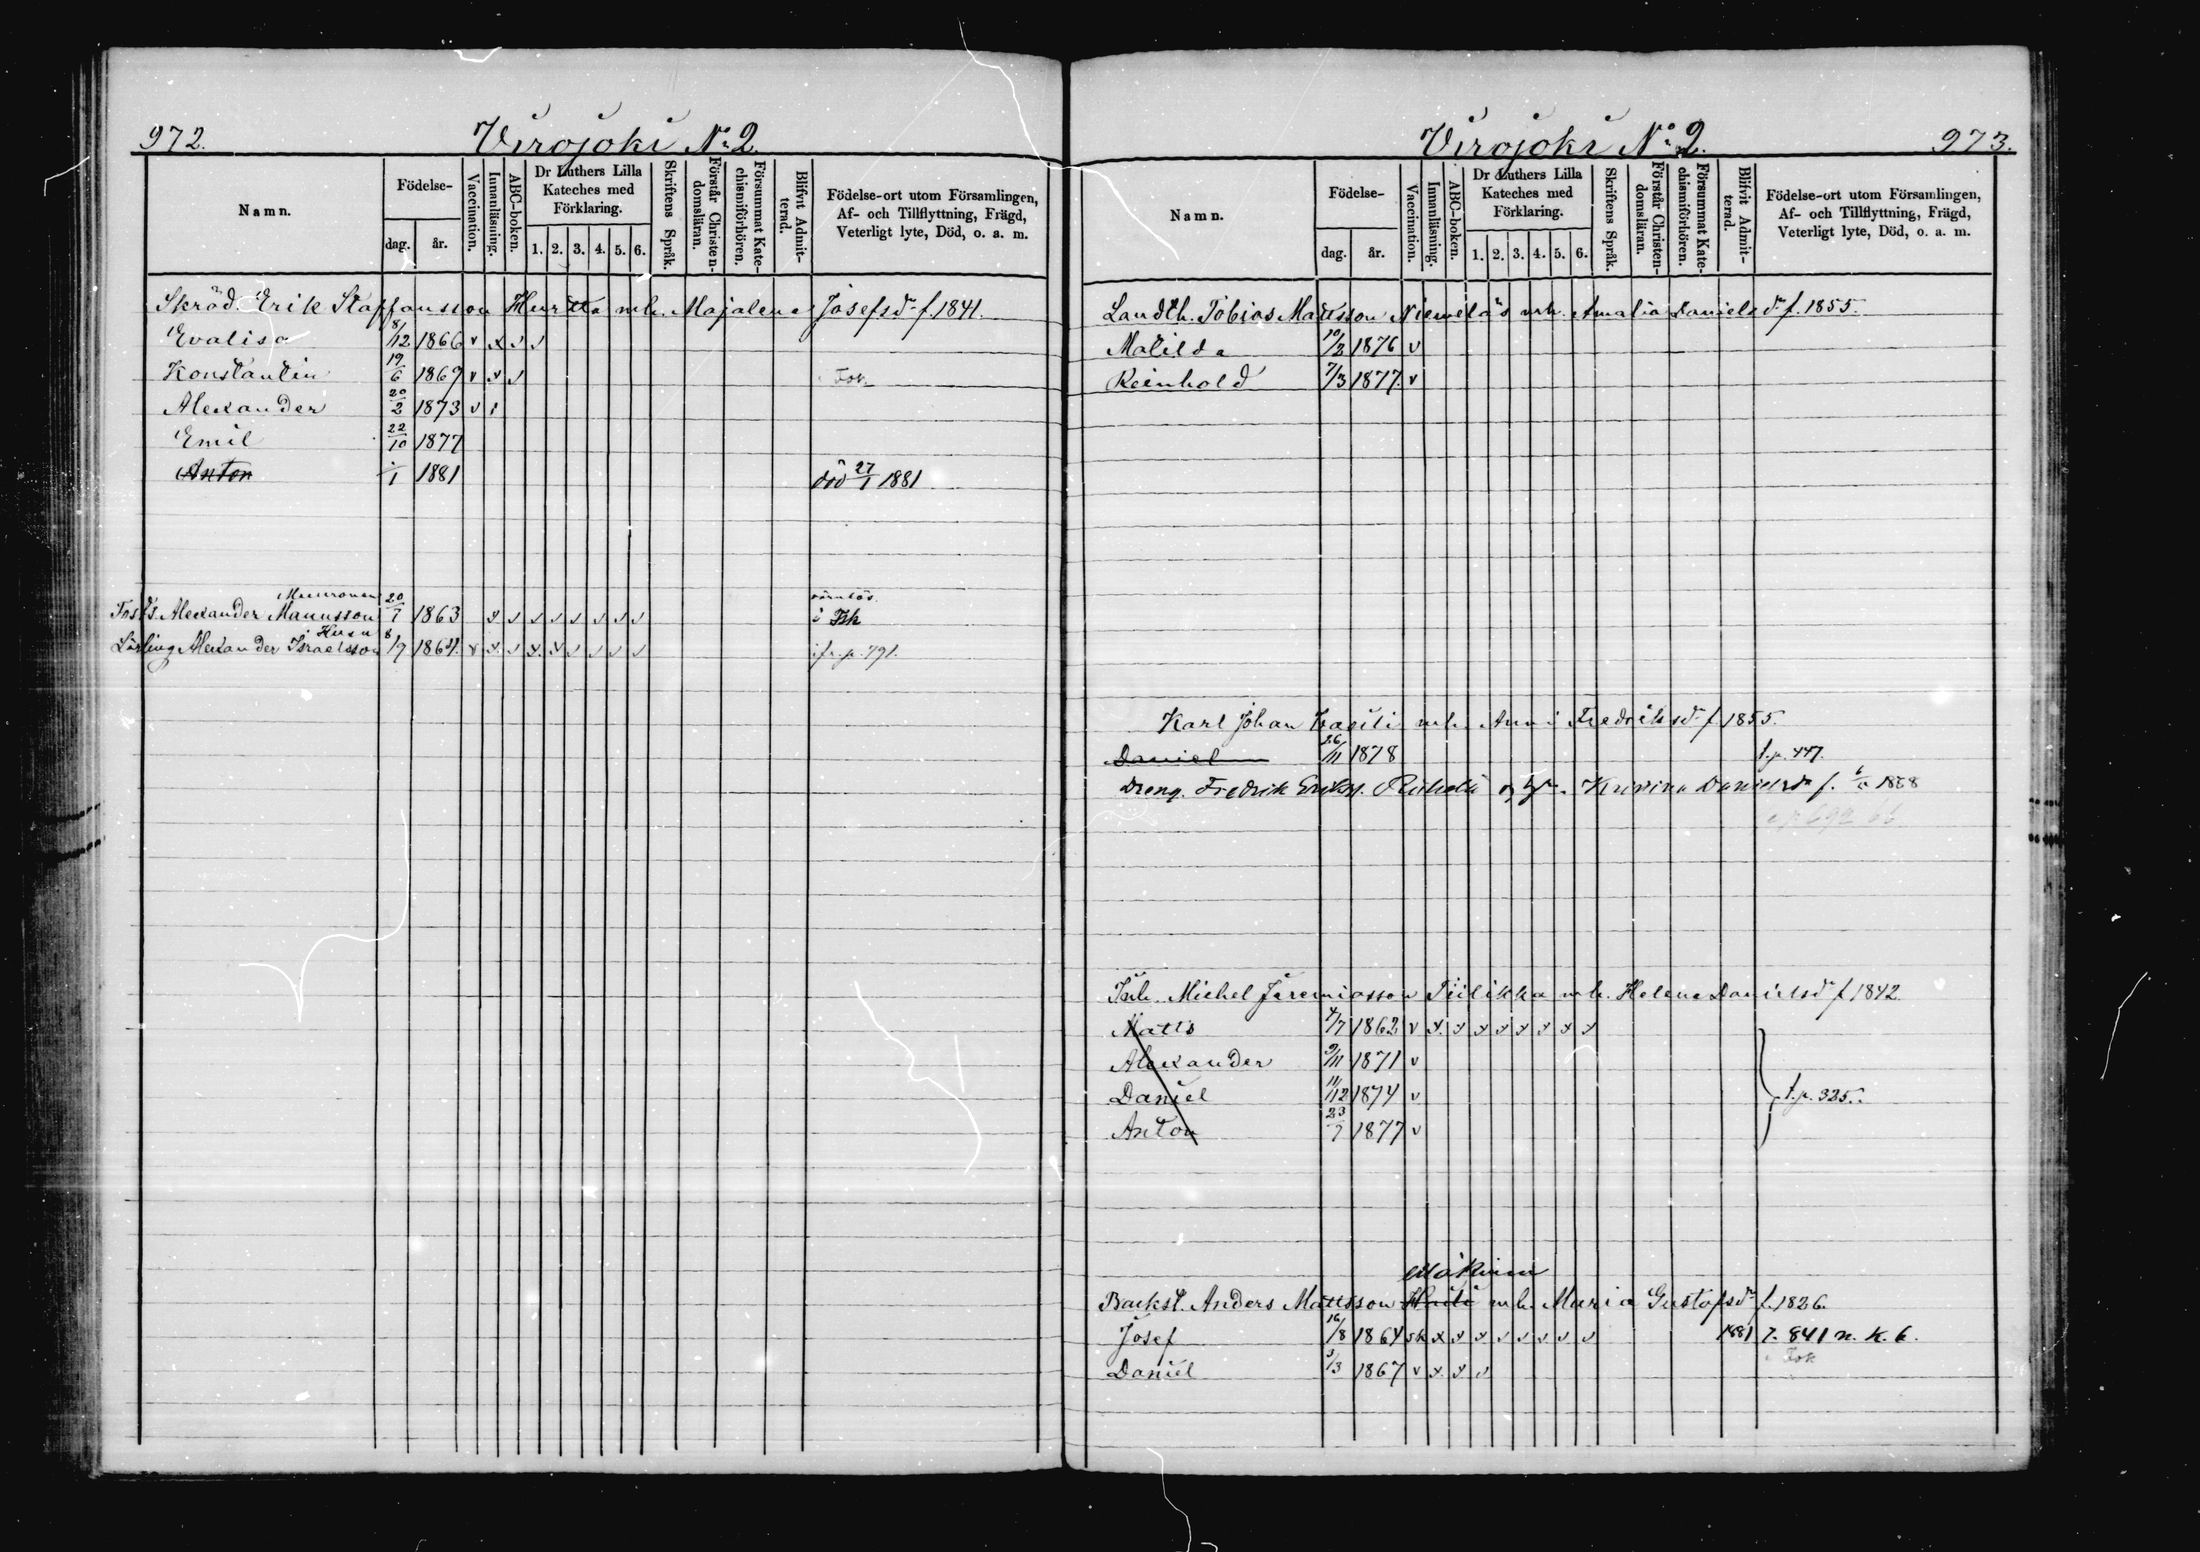 972.
Virojoki No 2.
Namn.
Födelse-
dag.
år.
Vaccination.
Innanläsning.
ABC-boken.
Dr Luthers Lilla
Kateches med
Förklaring.
1. 2. 3. 4. 5. 6.
Skriftens Språk.
Förstår Christen-
domsläran.
Försummat Kate-
chismiförhören.
Blifvit Admit-
terad.
Födelse-ort utom Församlingen,
Af- och Tillflyttning, Frägd,
Veterligt lyte, Död, o. a. m.
Skräd. Erik Staffansson Hurtta m.h. Majalena Josefsdr f. 1841.
Evalisa 8/12 1866 v x v v
Konstantin 19/6 1869 v x v
Alexander 20/2 1873 v
Emil 22/10 1877
Anton 1 1881 död 27/1 1881
Alexander Mannsson 20/7 1863 x v v v v v v v
Husu
Lärling Alexander Israelsson 8/9 1864. v x v x. x v v v v p. 791.
Virojoki No 2.
973.
Namn.
Födelse-
dag.
år.
Vaccination.
Innanläsning.
ABC-boken.
Dr Luthers Lilla
Kateches med
Förklaring.
1. 2. 3. 4. 5. 6.
Skriftens Språk.
Förstår Christen-
domsläran.
Försummat Kate-
chismiförhören.
Blifvit Admit-
terad.
Födelse-ort utom Församlingen,
Af- och Tillflyttning, Frägd,
Veterligt lyte, Död, o. a. m.
Landth. Tobias Mattsson Niemelä's m.h. Amalia Danielsdr f. 1855.
Matilda 10/2 1876 v
Reinhold 7/3 1877. v
Karl Johan m.h. Anna Fredriksdr f. 1855.
Daniel 26/11 1878 t.p. 447.
Dreng. Fredrik Eriks. Danielsdr f. 1858
Inh. Michel Jeremiasson Tiilikka m.h. Helena Danielsdr f. 1842.
Matts 4/7 1862 v x. x x x x x x x
Alexander 9/11 1871 v
Daniel 11/12 1874 v t.p. 325.
Anton 23/7 1877 v
Backst. Anders Mattsson m.h. Maria Gustafsdr f. 1826.
Josef 16/8 1864 sk x x x v v v v v 1881 7. 841 n. k. b.
Daniel 3/3 1867 v x. x v